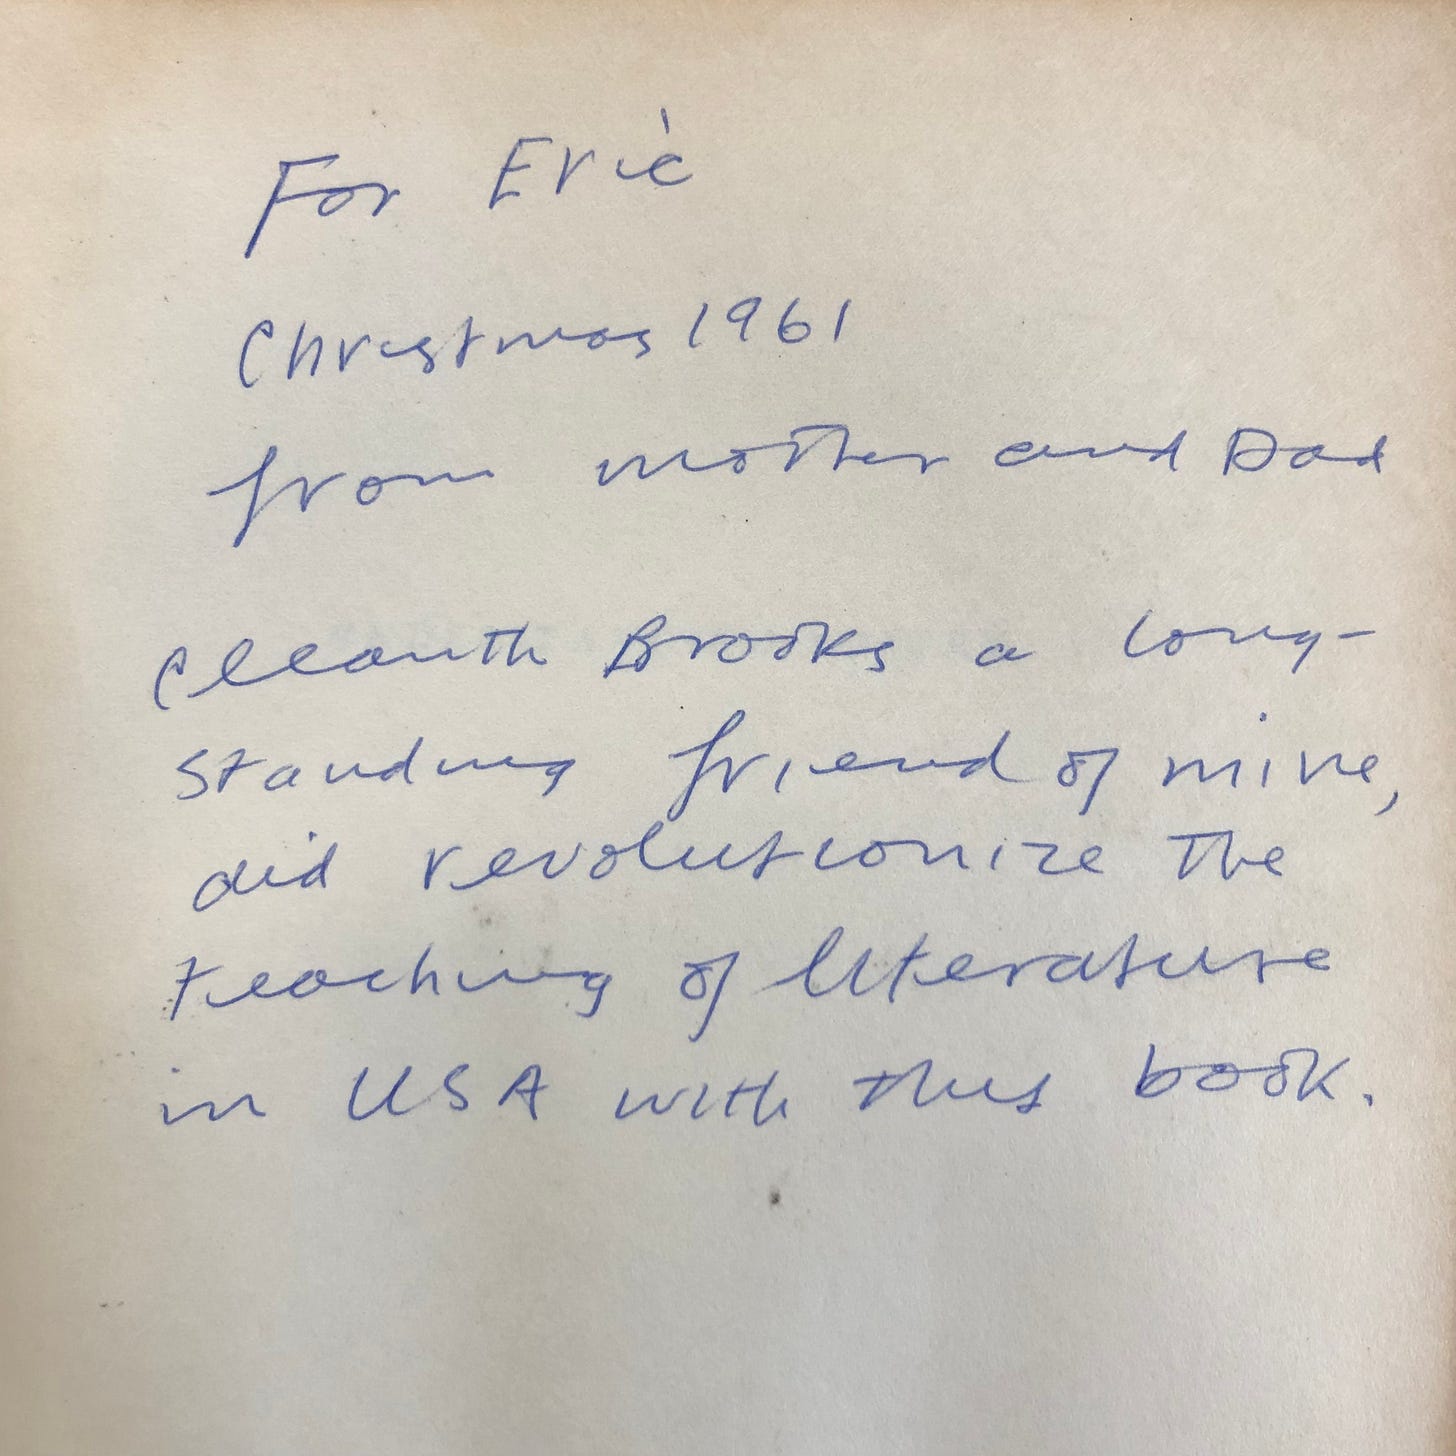 For Eric
Christmas 1961
from mother and Dad
Cleanth Brooks a long-
standing friend of mine,
did revolutionize the
teaching of literature
in USA with this book.